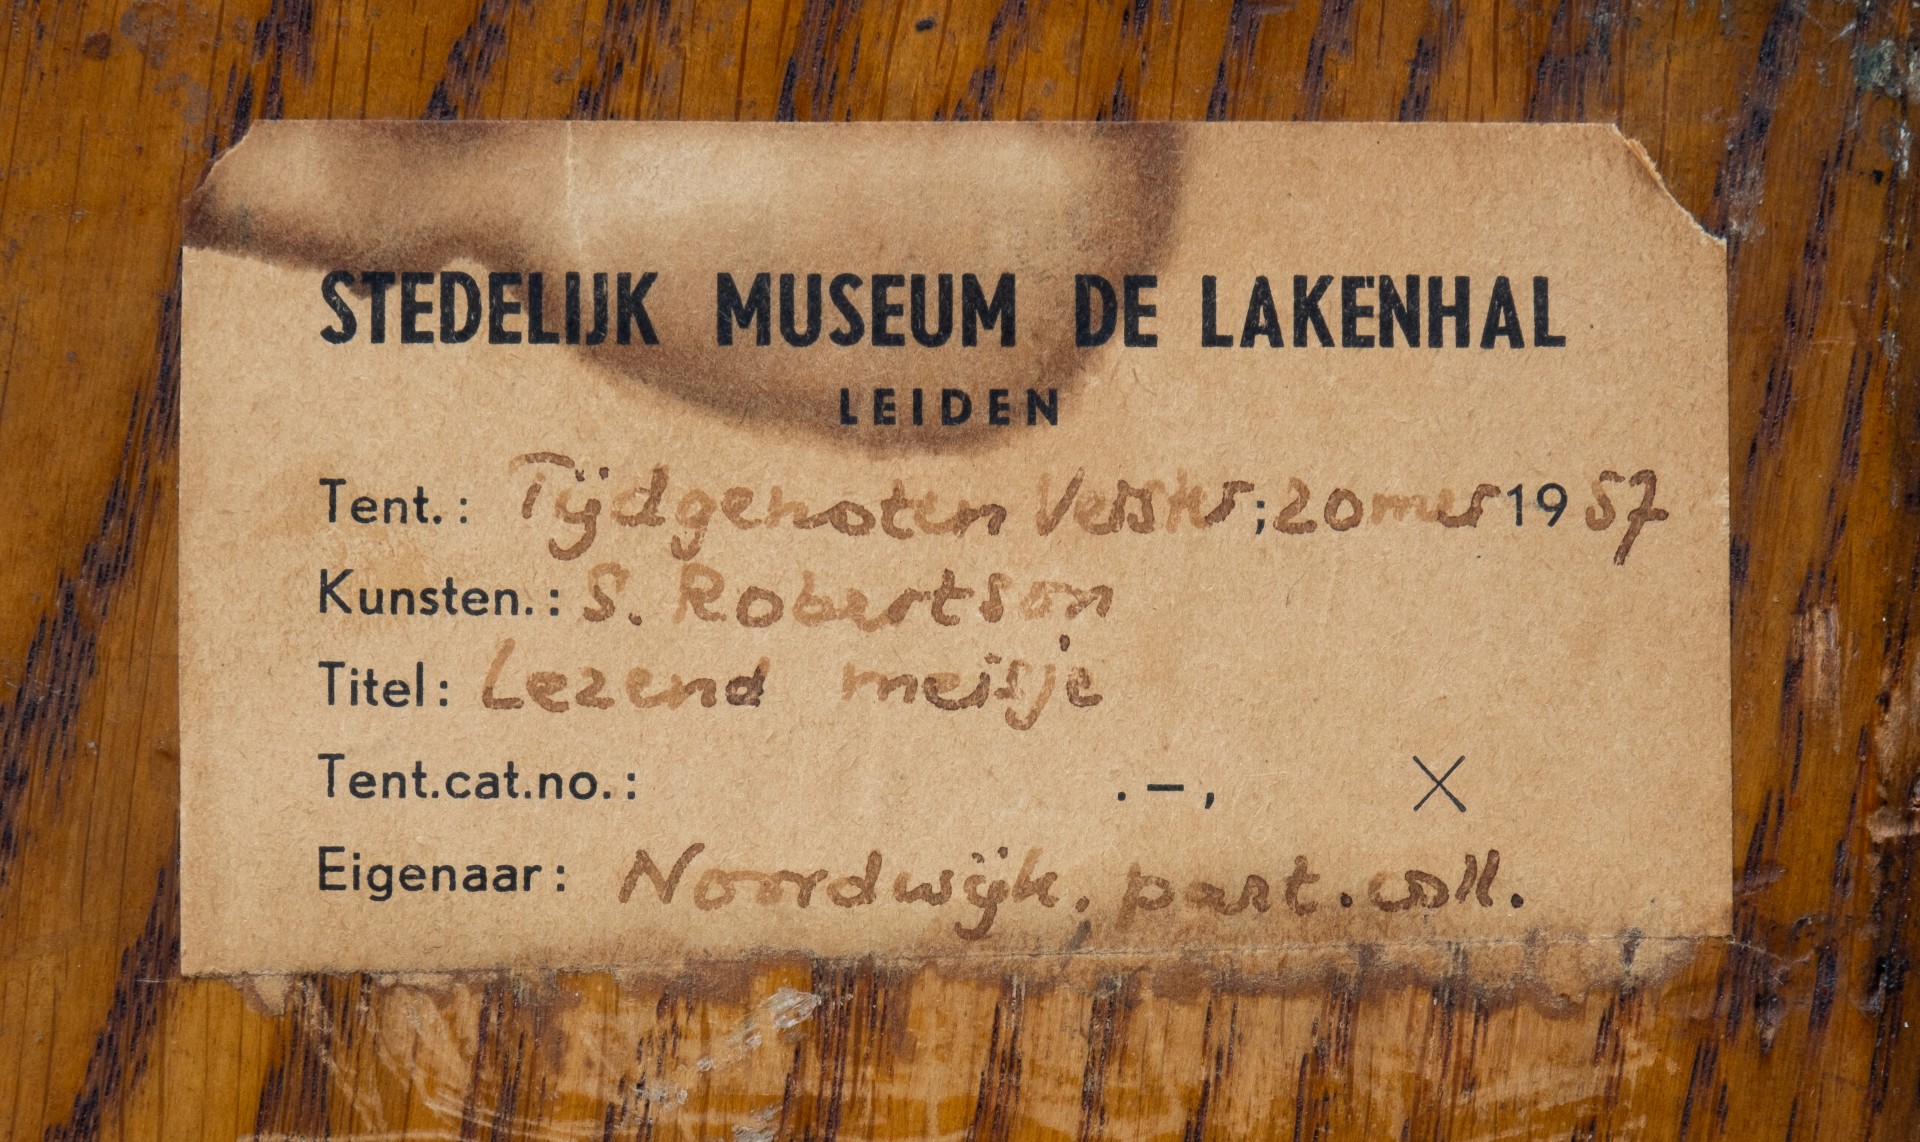 STEDELIJK MUSEUM DE LAKENHAL
LEIDEN
Tent.: Tijdgenoten Verster; zomer 1957
Kunsten.: S. Robertson
Titel: Lezend meisje
Tent.cat.no.: .–, X
Eigenaar: Noordwijk, part. coll.